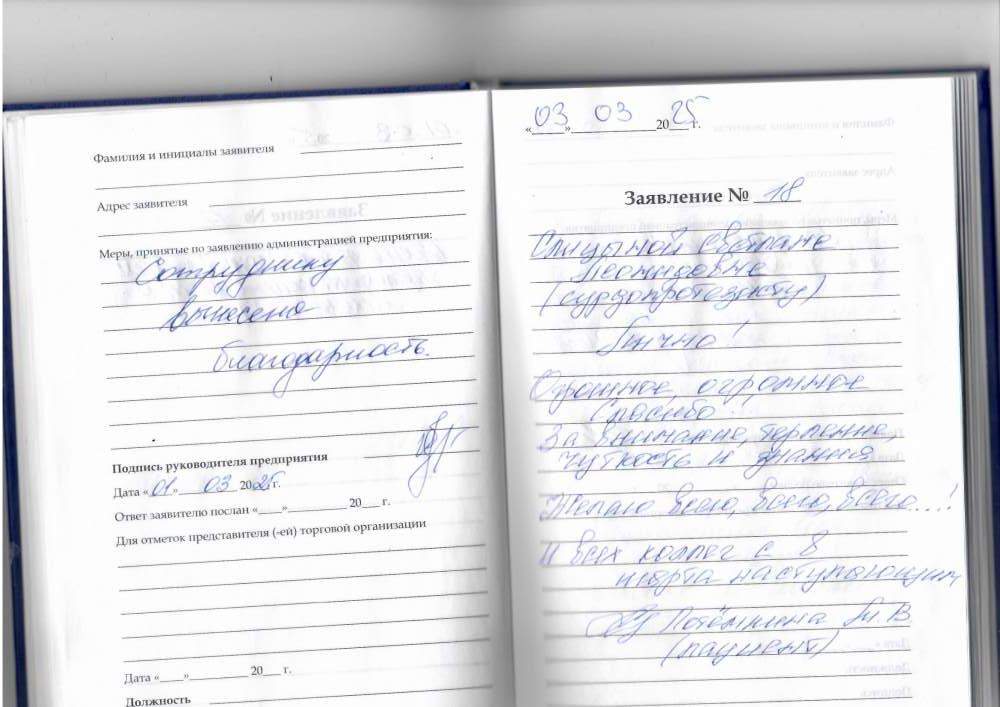 Фамилия и инициалы заявителя
Адрес заявителя
Меры, принятые по заявлению администрацией предприятия:
Сотруднику
вынесена
благодарность.
Подпись руководителя предприятия
Дата «01» 03 2025 г.
Ответ заявителю послан «____»__________ 20___ г.
Для отметок представителя (-ей) торговой организации
Дата «____»__________ 20___ г.
Должность
«03» 03 2025 г.
Заявление № 18
Спицыной Светлане
Леонидовне
(сурдопротезисту)
Лично!
Огромное, огромное
Спасибо
За внимание, терпение,
чуткость и знания
Желаю всего, всего, всего...!
И всех коллег с 8
марта наступающим
Потёмкина М. В.
(пациент)